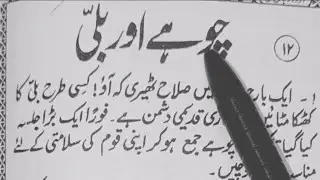 چوہے اور بلّی
۱۲
۱ - ایک بار صلاح ٹھیری کہ آؤ! کسی طرح بلّی کا
کھٹکا مٹائیں قدیمی دشمن ہے۔ فوراً ایک بڑا جلسہ
کیا گیا چوہے جمع ہو کر اپنی قوم کی سلامتی کے لئے